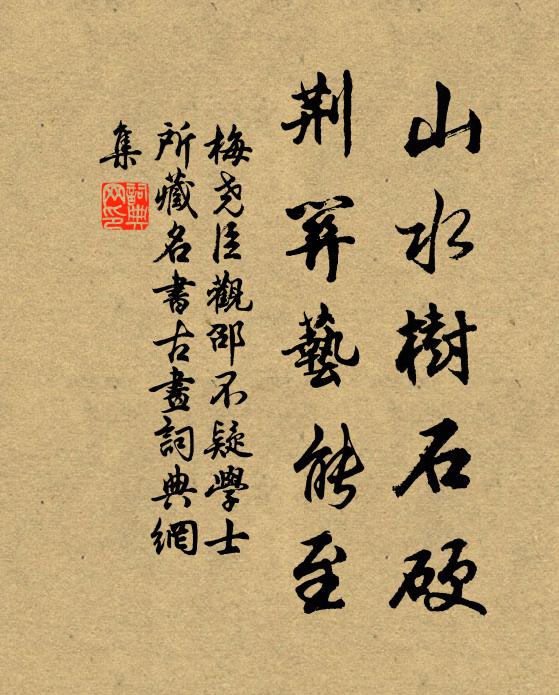 山水樹石硬
荆關藝能至
梅尧臣觀邵不疑學士
所藏名書古畫詞典網
集
詞典网印